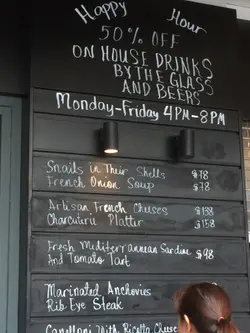 Happy Hour
50% OFF
ON HOUSE DRINKS
BY THE GLASS
AND BEERS
Monday-Friday 4PM-8PM
Snails in Their Shells $78
French Onion Soup $78
Artisan French Cheeses $138
Charcuterie Platter $158
Fresh Mediterranean Sardine $98
And Tomato Tart
Marinated Anchovies
Rib Eye Steak
With Ricotta Cheese